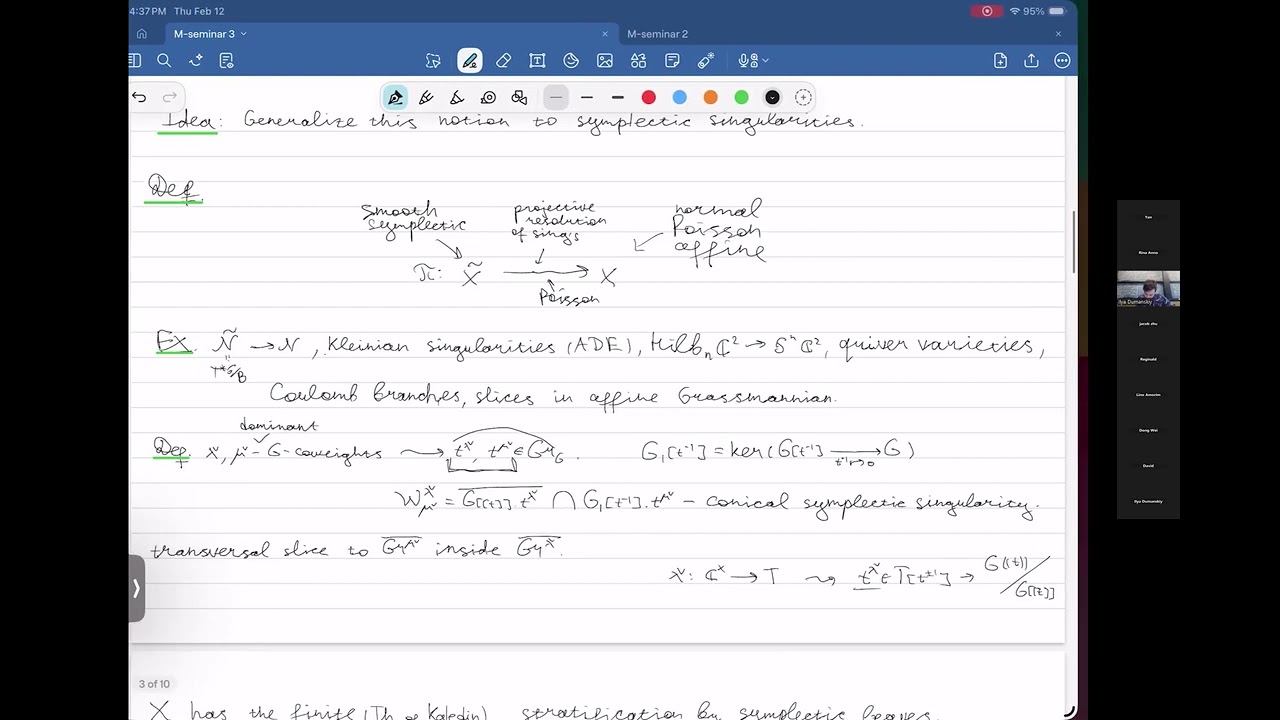 4:37 PM Thu Feb 12
95%
M-seminar 3
M-seminar 2
Idea: Generalize this notion to symplectic singularities.
Def
smooth symplectic
projective resolution of sing's
normal Poisson affine
π: X̃ ⟶ X
Poisson
Ex. Ñ → N, Kleinian singularities (ADE), Hilbₙ ℂ² → Sⁿℂ², quiver varieties,
T*G/B
Coulomb branches, slices in affine Grassmannian.
dominant
Def λ^∨, μ^∨ - G-coweights ⇝ t^{λ^∨}, t^{μ^∨} ∈ Gr_G. G₁[t⁻¹] = ker(G[t⁻¹] ⟶ G)
t⁻¹↦0
W^{λ^∨}_{μ^∨} = \overline{G[[t]].t^{λ^∨}} ∩ G₁[t⁻¹].t^{μ^∨} - conical symplectic singularity.
transversal slice to \overline{Gr^{μ^∨}} inside \overline{Gr^{λ^∨}}.
λ^∨: ℂ^× ⟶ T ⇝ t^{λ^∨} ∈ T[t^{±1}] → G((t))/G[[t]]
3 of 10
X has the finite (Th of Kaledin) stratification by symplectic leaves.
Yan
Rina Anno
Ilya Dumanskiy
jacob zhu
Reginald
Lino Amorim
Dong Wei
David
Ilya Dumanskiy